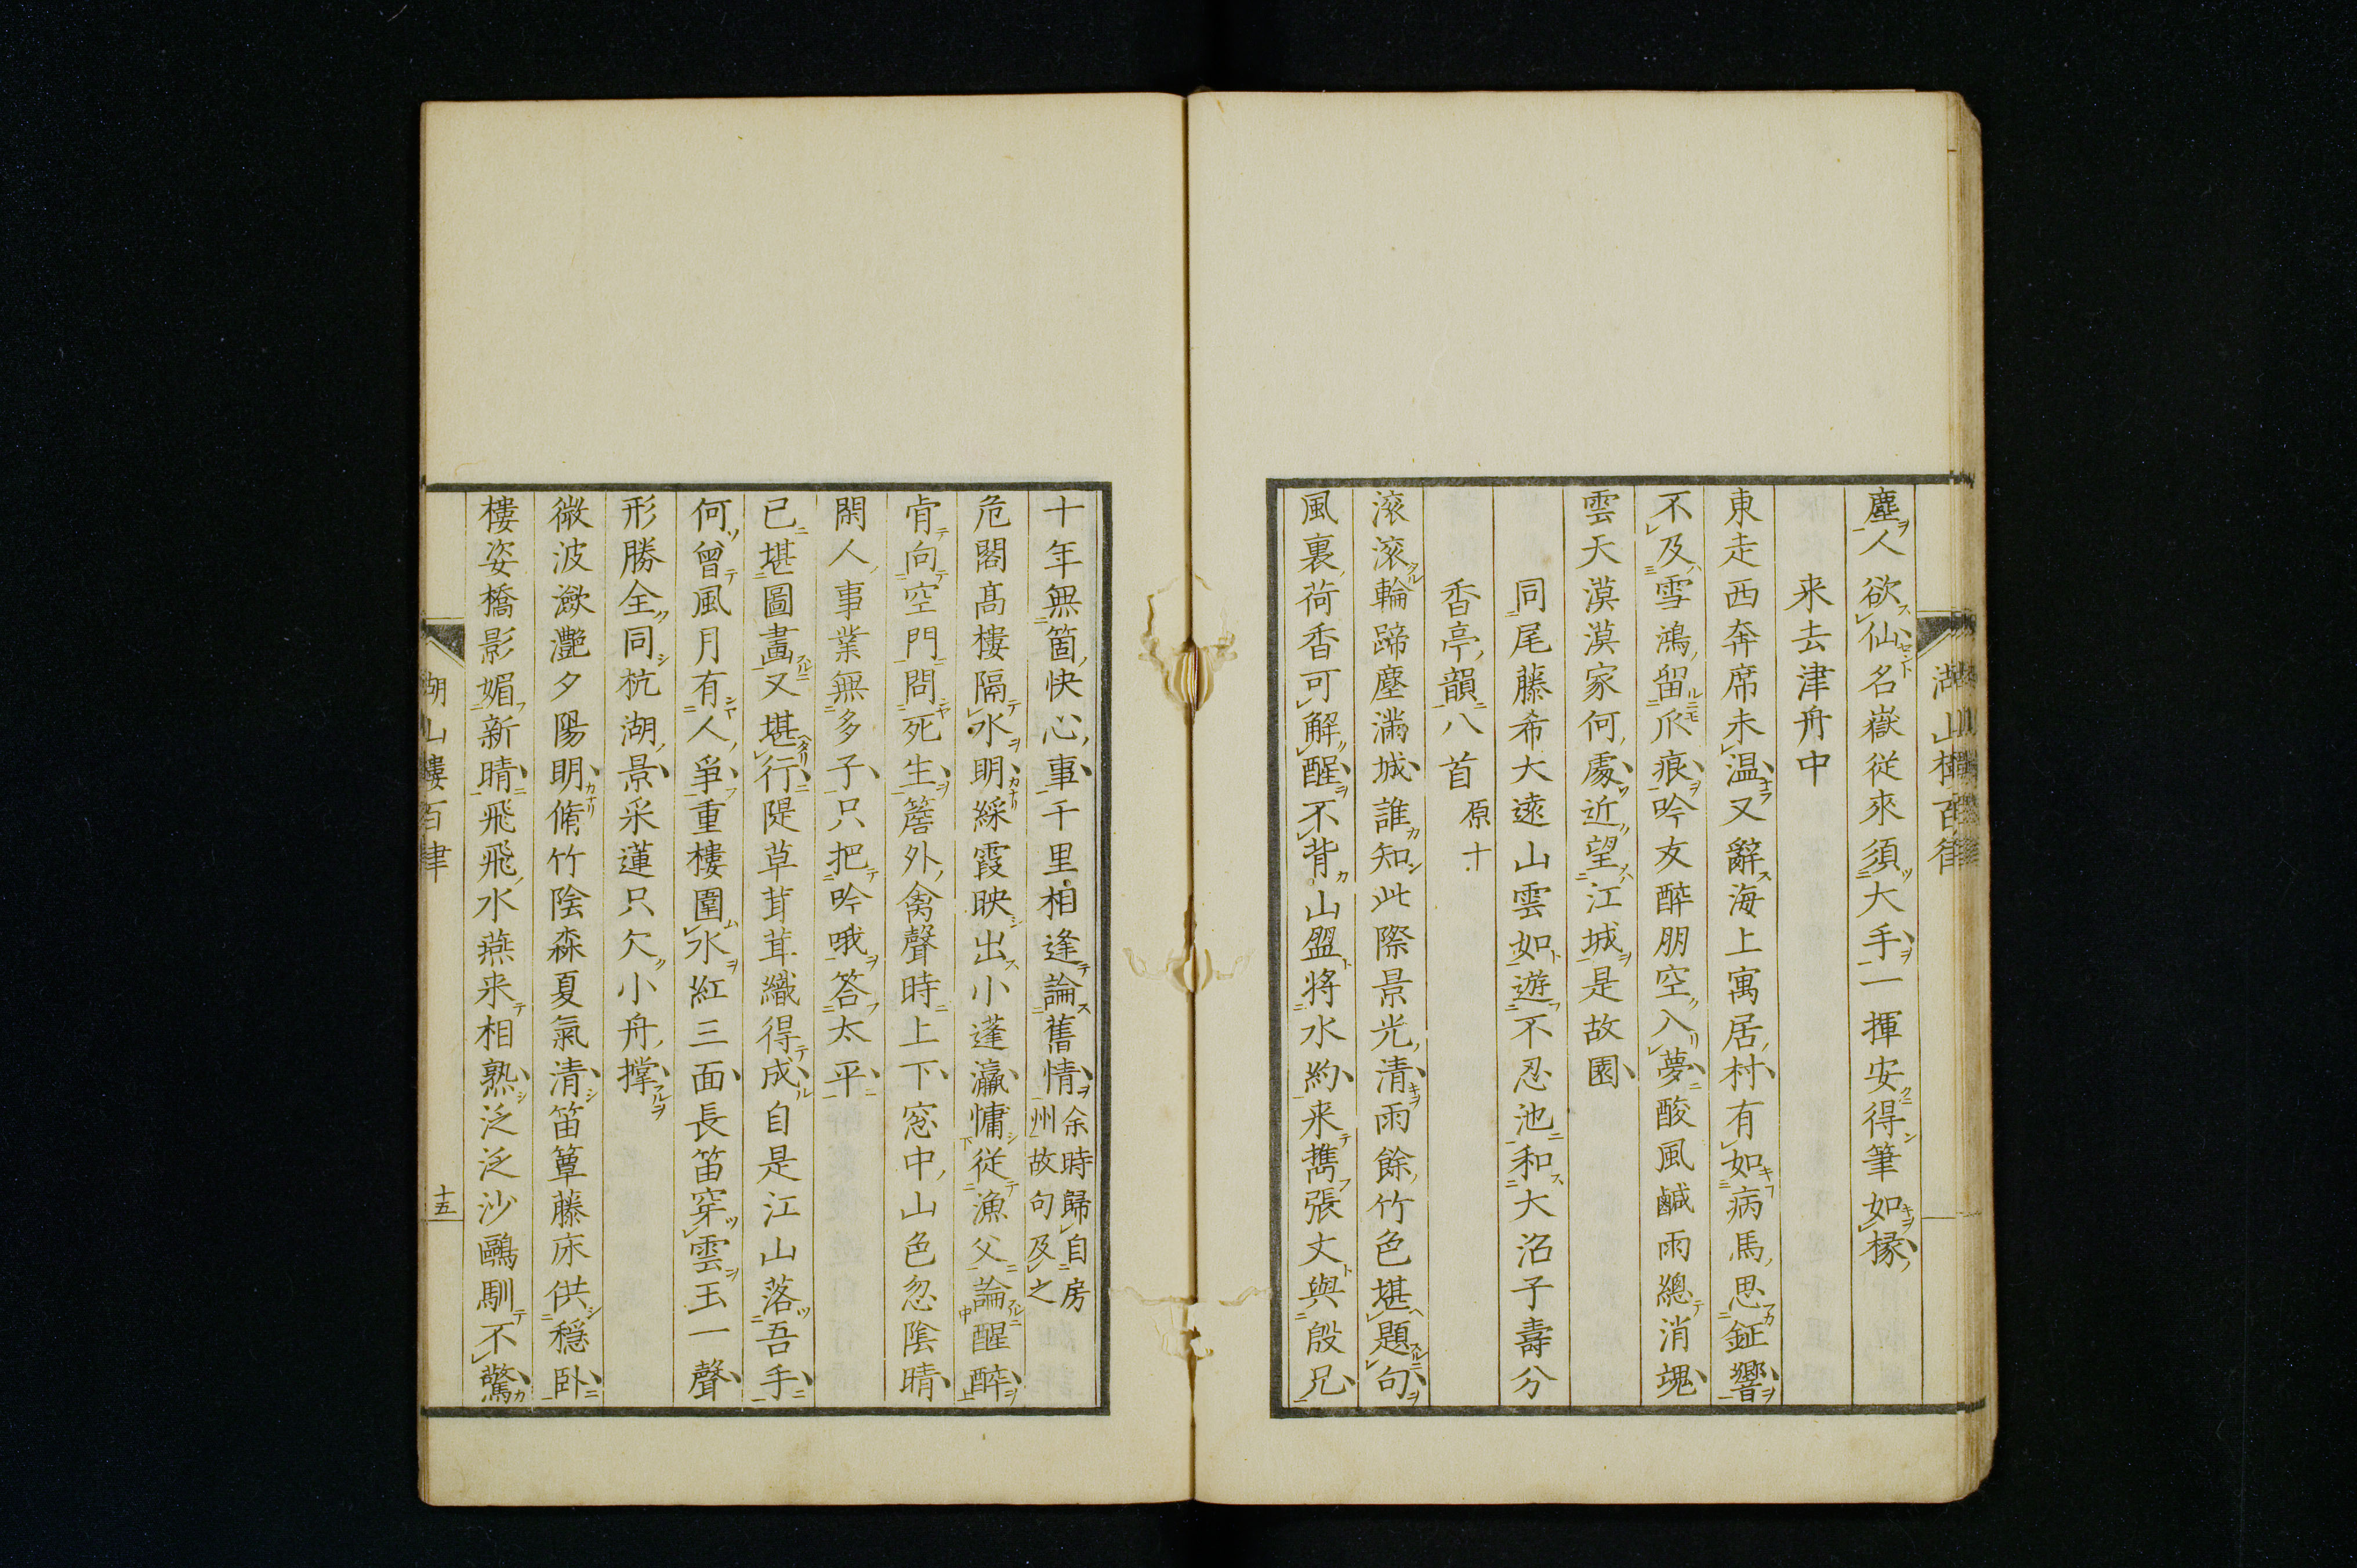 湖山樓百律
塵人欲仙名嶽従來須大手一揮安得筆如椽
来去津舟中
東走西奔席未温又辭海上寓居村有如病馬思鉦響
不及雪鴻留爪痕吟友醉朋空入夢酸風鹹雨總消魂
雲天漠漠家何處近望江城是故園
同尾藤希大遠山雲如遊不忍池和大沼子壽分
香亭韻八首原十
滚滚輪蹄塵滿城誰知此際景光清雨餘竹色堪題句
風裏荷香可解醒不背山盟将水約来携張丈與殷兄
十年無箇快心事千里相逢論舊情余時歸自房
州故句及之
危閣髙樓隔水明綵霞映出小蓬瀛慵従漁父論醒醉
肯向空門問死生簷外禽聲時上下窓中山色忽陰晴
閑人事業無多子只把吟哦答太平
已堪圖畫又堪行隄草茸茸織得成自是江山落吾手
何曾風月有人爭重樓圍水紅三面長笛穿雲玉一聲
形勝全同杭湖景采蓮只欠小舟撑
微波瀲灔夕陽明脩竹陰森夏氣清笛簟藤床供穩卧
樓姿橋影媚新晴飛飛水燕来相熟泛泛沙鷗馴不驚
湖山樓百律
十五